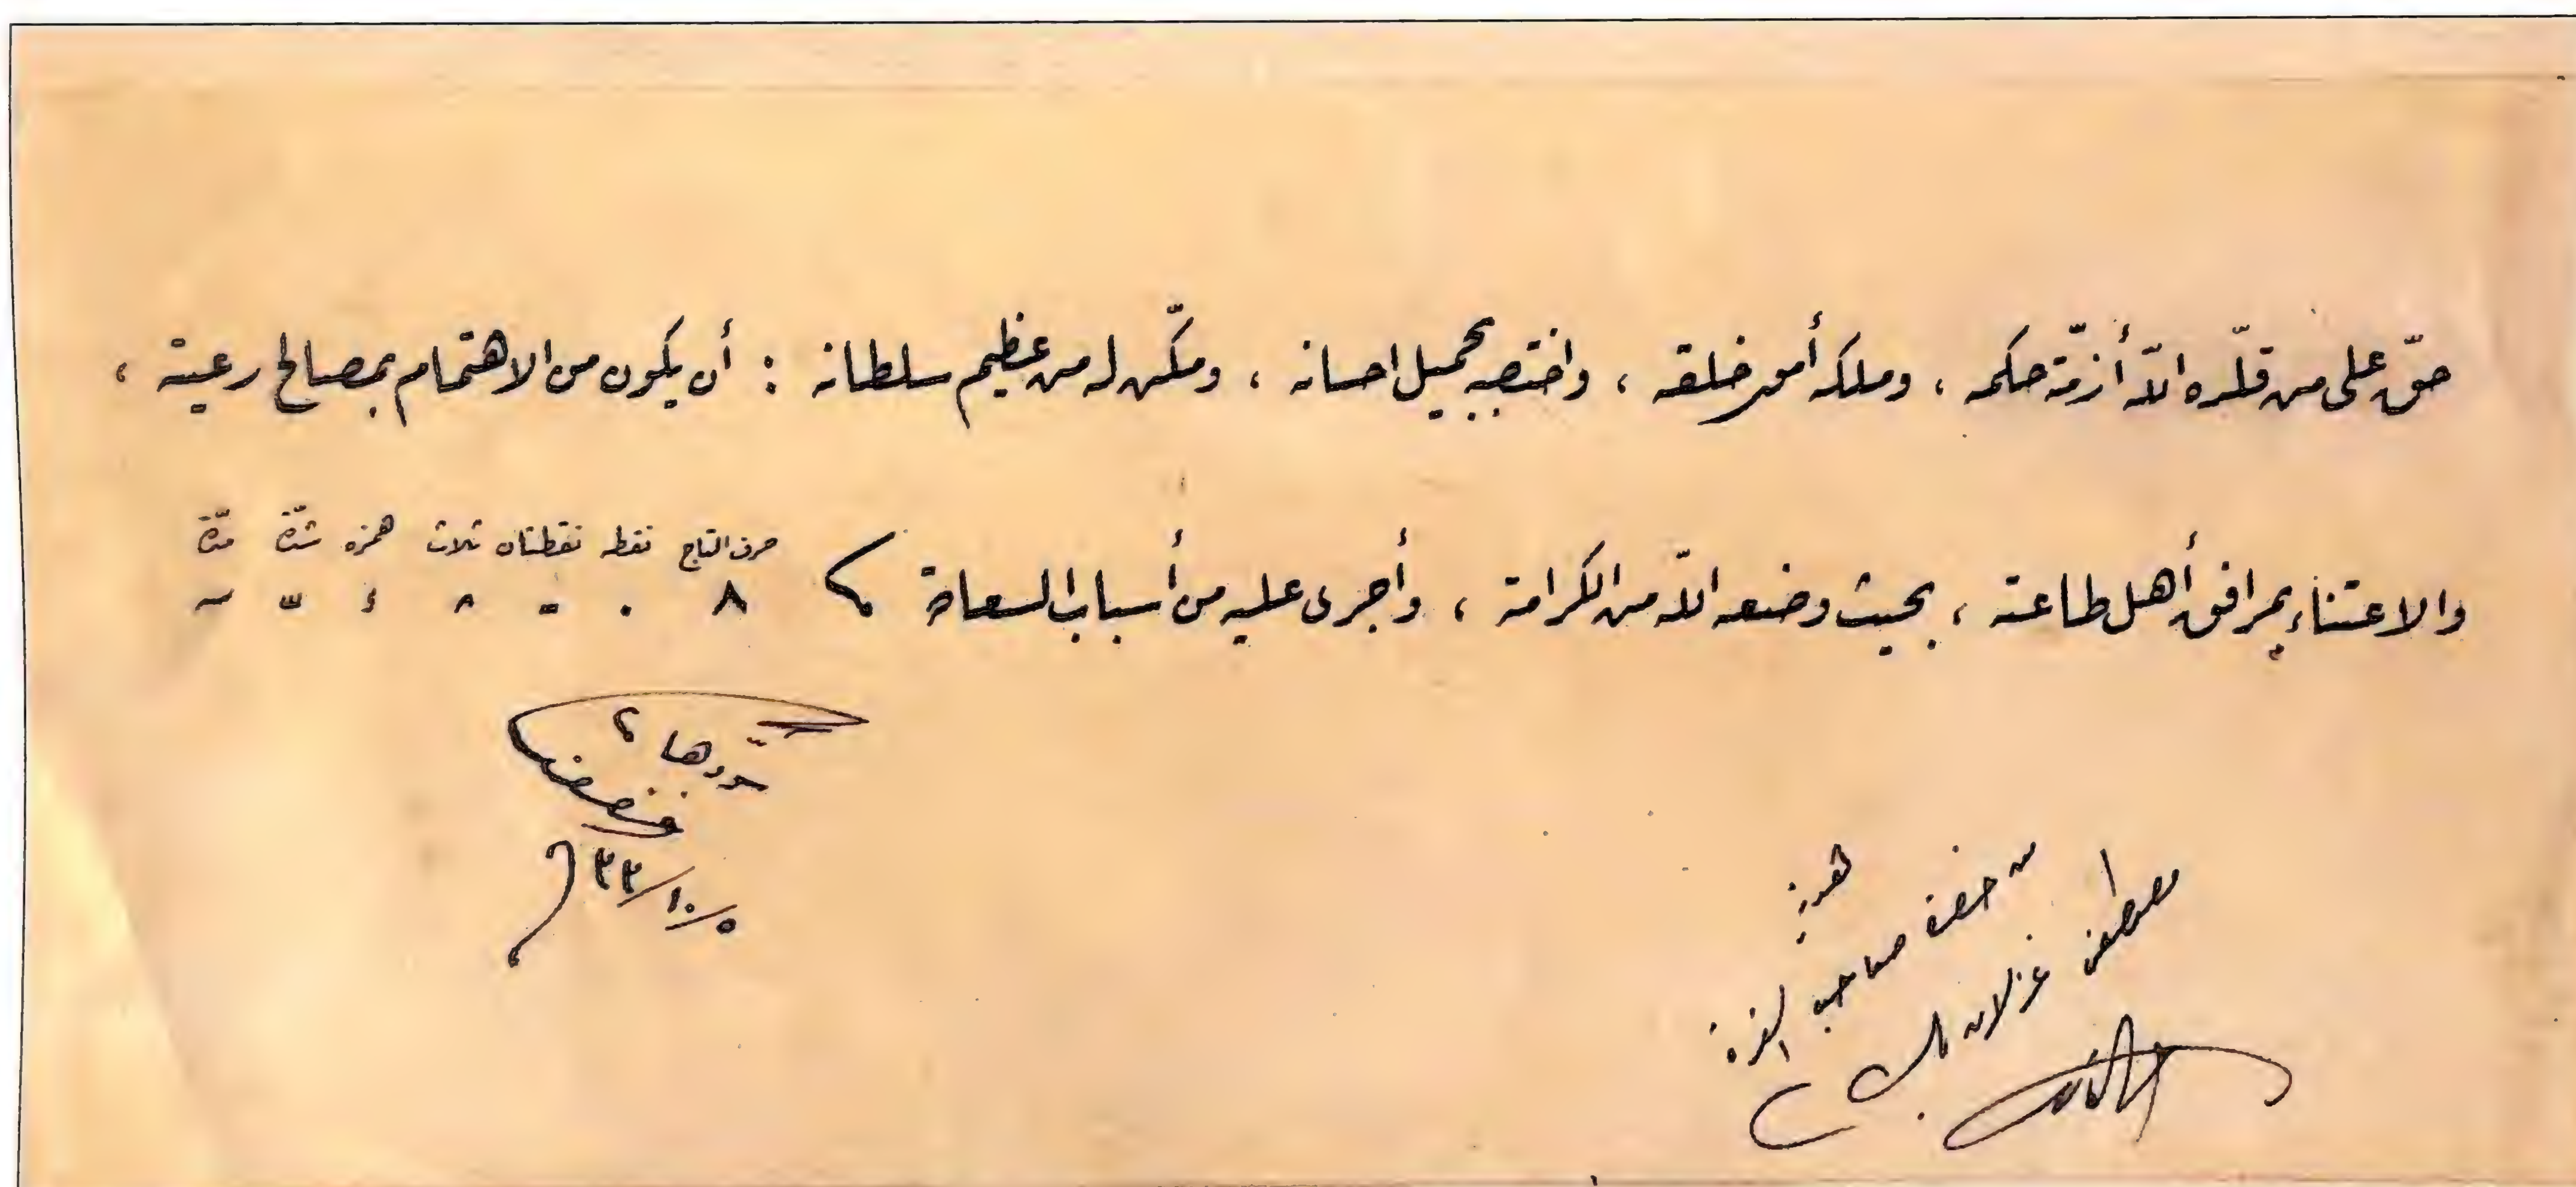 حقّ على من قلّده اللّه أزمّة حكمه ، وملكه أمور خلقه ، واختصه بجميل احسانه ، ومكّن له من عظيم سلطانه : أن يكون من الاهتمام بمصالح رعيته ،
والاعتناء بمرافق أهل طاعته ، بحيث وضعه اللّه من الكرامة ، وأجرى عليه من أسباب السعادة
حرف التاج نقطه نقطتان ثلاث همزه شدّة مدّة
٥/١٠/٣٣
هدية
من حضرة صاحب العزة
مصطفى غزلان بك